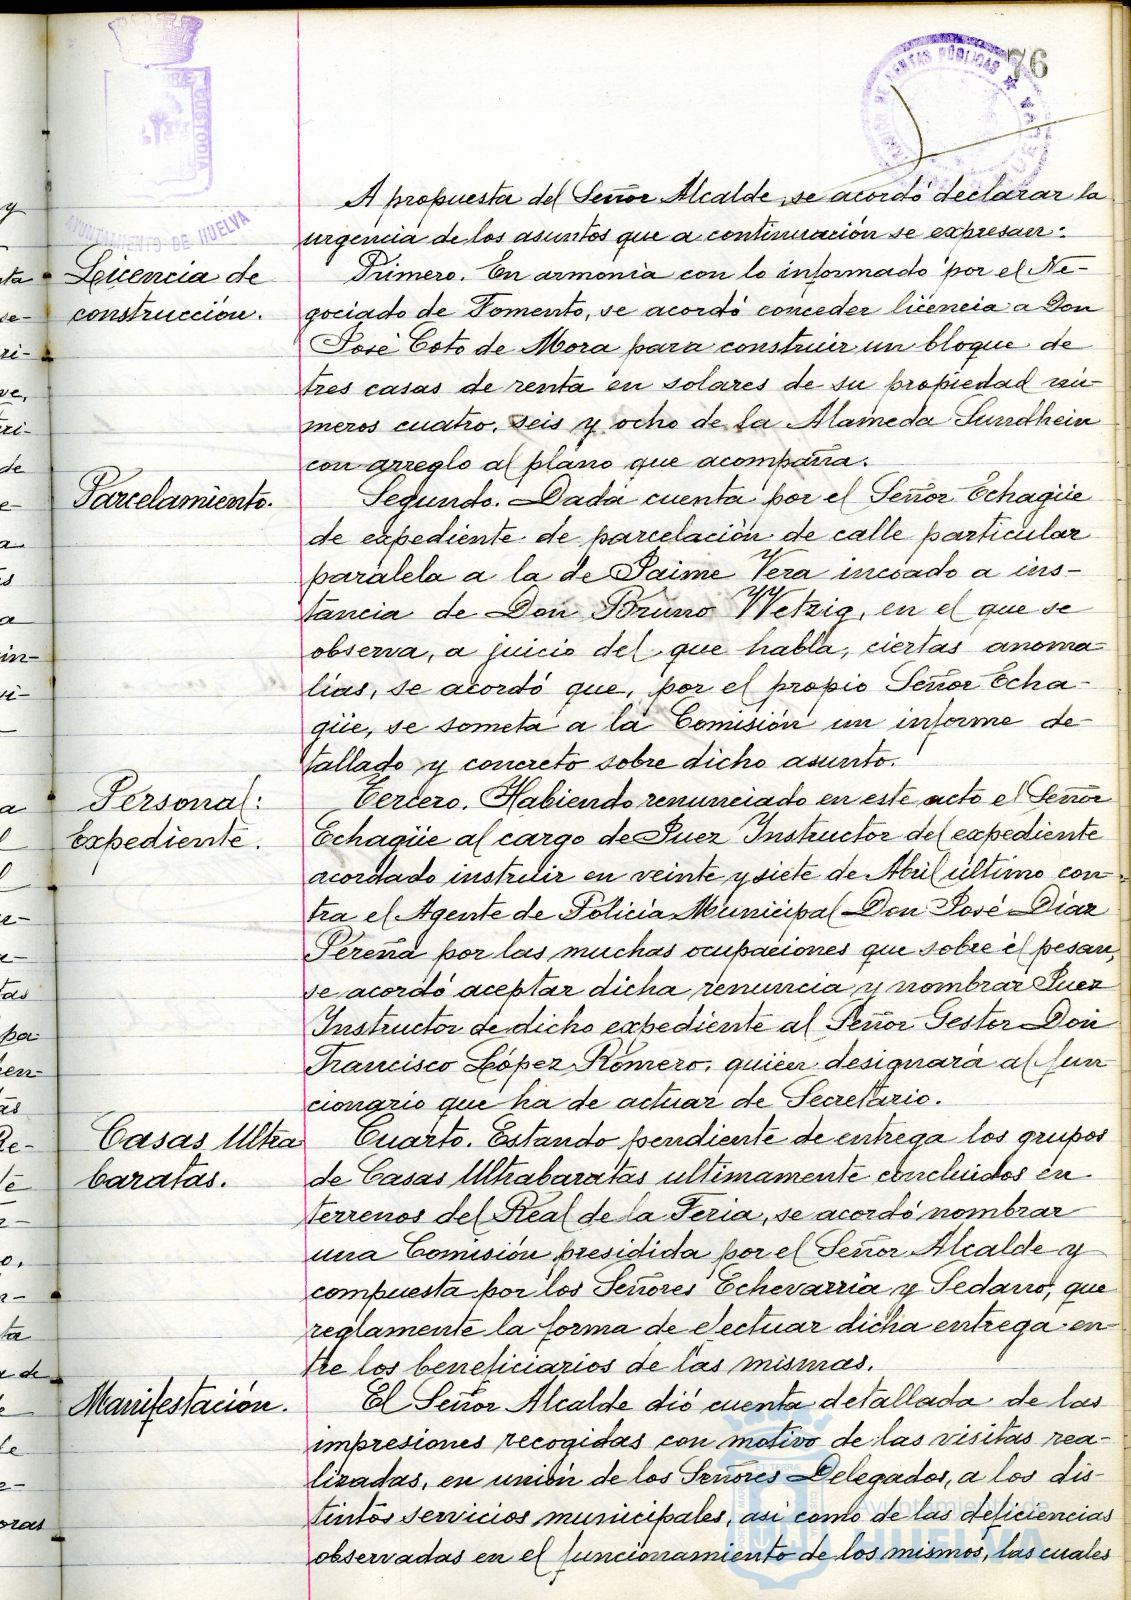 76
AYUNTAMIENTO DE HUELVA
A propuesta del Señor Alcalde, se acordó declarar la
urgencia de los asuntos que a continuación se expresan:
Licencia de
construcción.
Primero. En armonía con lo informado por el Ne-
gociado de Fomento, se acordó conceder licencia a Don
José Coto de Mora para construir un bloque de
tres casas de renta en solares de su propiedad nú-
meros cuatro, seis y ocho de la Alameda Sundhein
con arreglo al plano que acompaña.
Parcelamiento.
Segundo. Dada cuenta por el Señor Echagüe
de expediente de parcelación de calle particular
paralela a la de Jaime Vera incoado a ins-
tancia de Don Bruno Wetzig, en el que se
observa, a juicio del que habla, ciertas anoma-
lías, se acordó que, por el propio Señor Echa-
güe, se someta a la Comisión un informe de-
tallado y concreto sobre dicho asunto.
Personal:
Expediente.
Tercero. Habiendo renunciado en este acto el Señor
Echagüe al cargo de Juez Instructor del expediente
acordado instruir en veinte y siete de Abril último con-
tra el Agente de Policía Municipal Don José Díaz
Pereña por las muchas ocupaciones que sobre él pesan,
se acordó aceptar dicha renuncia y nombrar Juez
Instructor de dicho expediente al Señor Gestor Don
Francisco López Romero, quien designará al fun
cionario que ha de actuar de Secretario.
Casas Ultra
baratas.
Cuarto. Estando pendiente de entrega los grupos
de Casas Ultrabaratas ultimamente concluidos en
terrenos del Real de la Feria, se acordó nombrar
una Comisión presidida por el Señor Alcalde y
compuesta por los Señores Echevarria y Sedano, que
reglamente la forma de efectuar dicha entrega en-
tre los beneficiarios de las mismas.
Manifestación.
El Señor Alcalde dió cuenta detallada de las
impresiones recogidas con motivo de las visitas rea-
lizadas, en unión de los Señores Delegados, a los dis-
tintos servicios municipales, asi como de las deficiencias
observadas en el funcionamiento de los mismos, las cuales
Ayuntamiento de
HUELVA